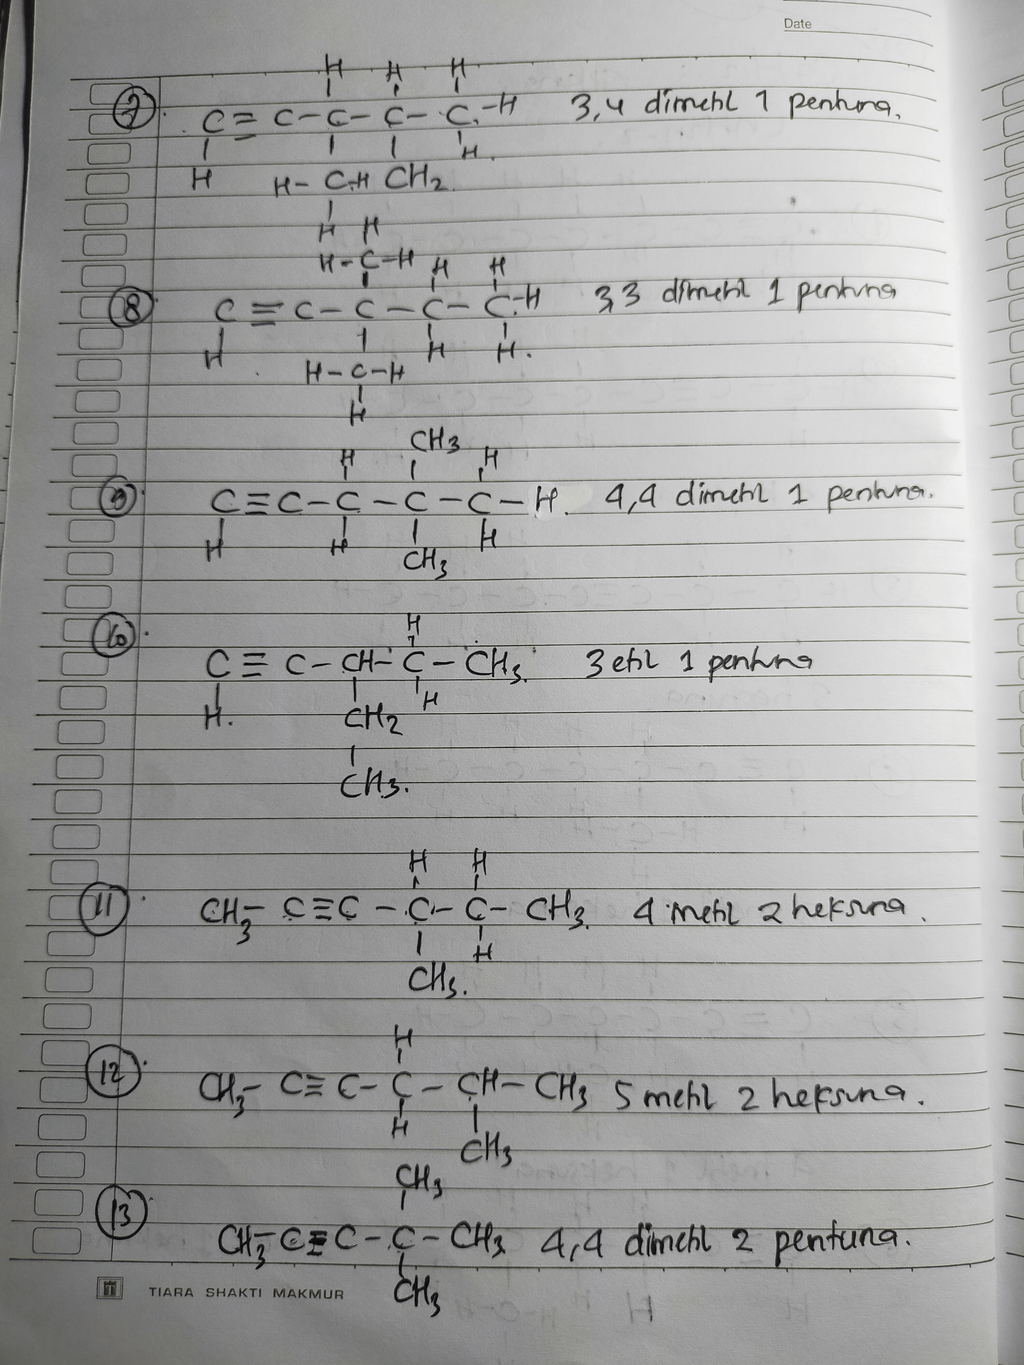 Date
H H H
7 C≡C-C-C-C-H 3,4 dimetil 1 pentuna.
H
H H-CH CH2
H H
H-C-H H H
8 C≡C-C-C-C-H 3,3 dimetil 1 pentuna
H H H.
H-C-H
H CH3
H H
9 C≡C-C-C-C-H. 4,4 dimetil 1 pentuna.
H H H
CH3
H
10. C≡C-CH-C-CH3. 3 etil 1 pentuna
H
H. CH2
CH3.
H H
11. CH3-C≡C-C-C-CH3. 4 metil 2 heksuna.
H
CH3.
H
12. CH3-C≡C-C-CH-CH3 5 metil 2 heksuna.
H
CH3
CH3
13. CH3-C≡C-C-CH3 4,4 dimetil 2 pentuna.
CH3
TIARA SHAKTI MAKMUR